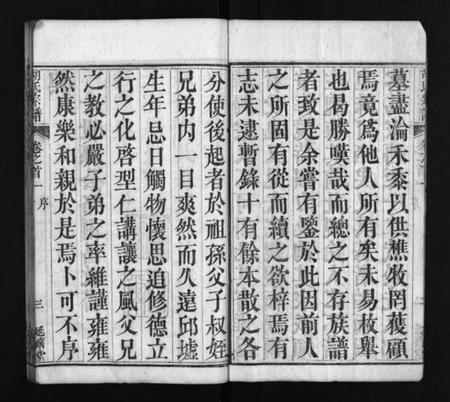 墓盡淪禾黍以供樵牧罔獲顧
焉竟為他人所有矣未易枚舉
也曷勝嘆哉而總之不存族譜
者致是余嘗有鑒於此因前人
之所固有從而續之欲梓焉有
志未逮暫錄十有餘本散之各
分使後起者於祖孫父子叔姪
兄弟内一目爽然而久遠邱墟
生年忌日觸物懷思追修德立
行之化啓型仁講讓之風父兄
之教必嚴子弟之率維謹雍雍
然康樂和親於是焉卜可不序
胡氏宗譜
卷之首一
序
三